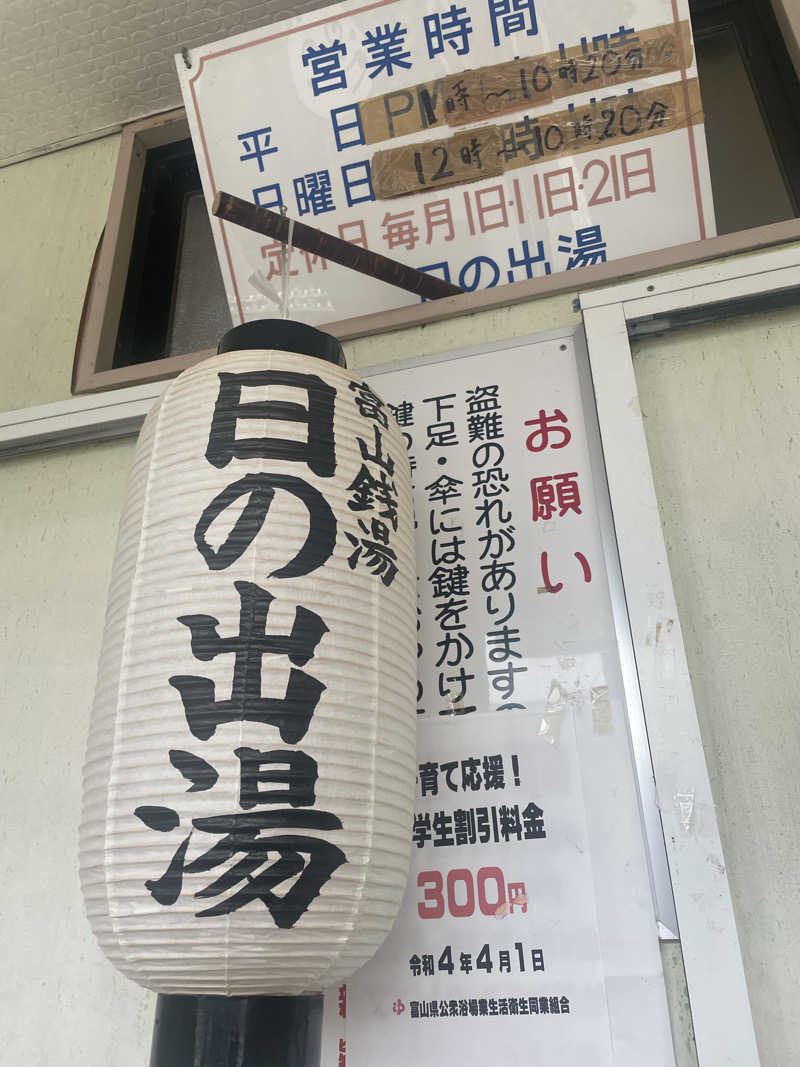 営業時間
平日PM 1時〜10時20分
日曜日 12時〜10時20分
定休日 毎月1日・11日・21日
日の出湯
富山銭湯
日の出湯
お願い
盗難の恐れがあります
下足・傘には鍵をかけ
育て応援！
学生割引料金
300円
令和4年4月1日
富山県公衆浴場業生活衛生同業組合